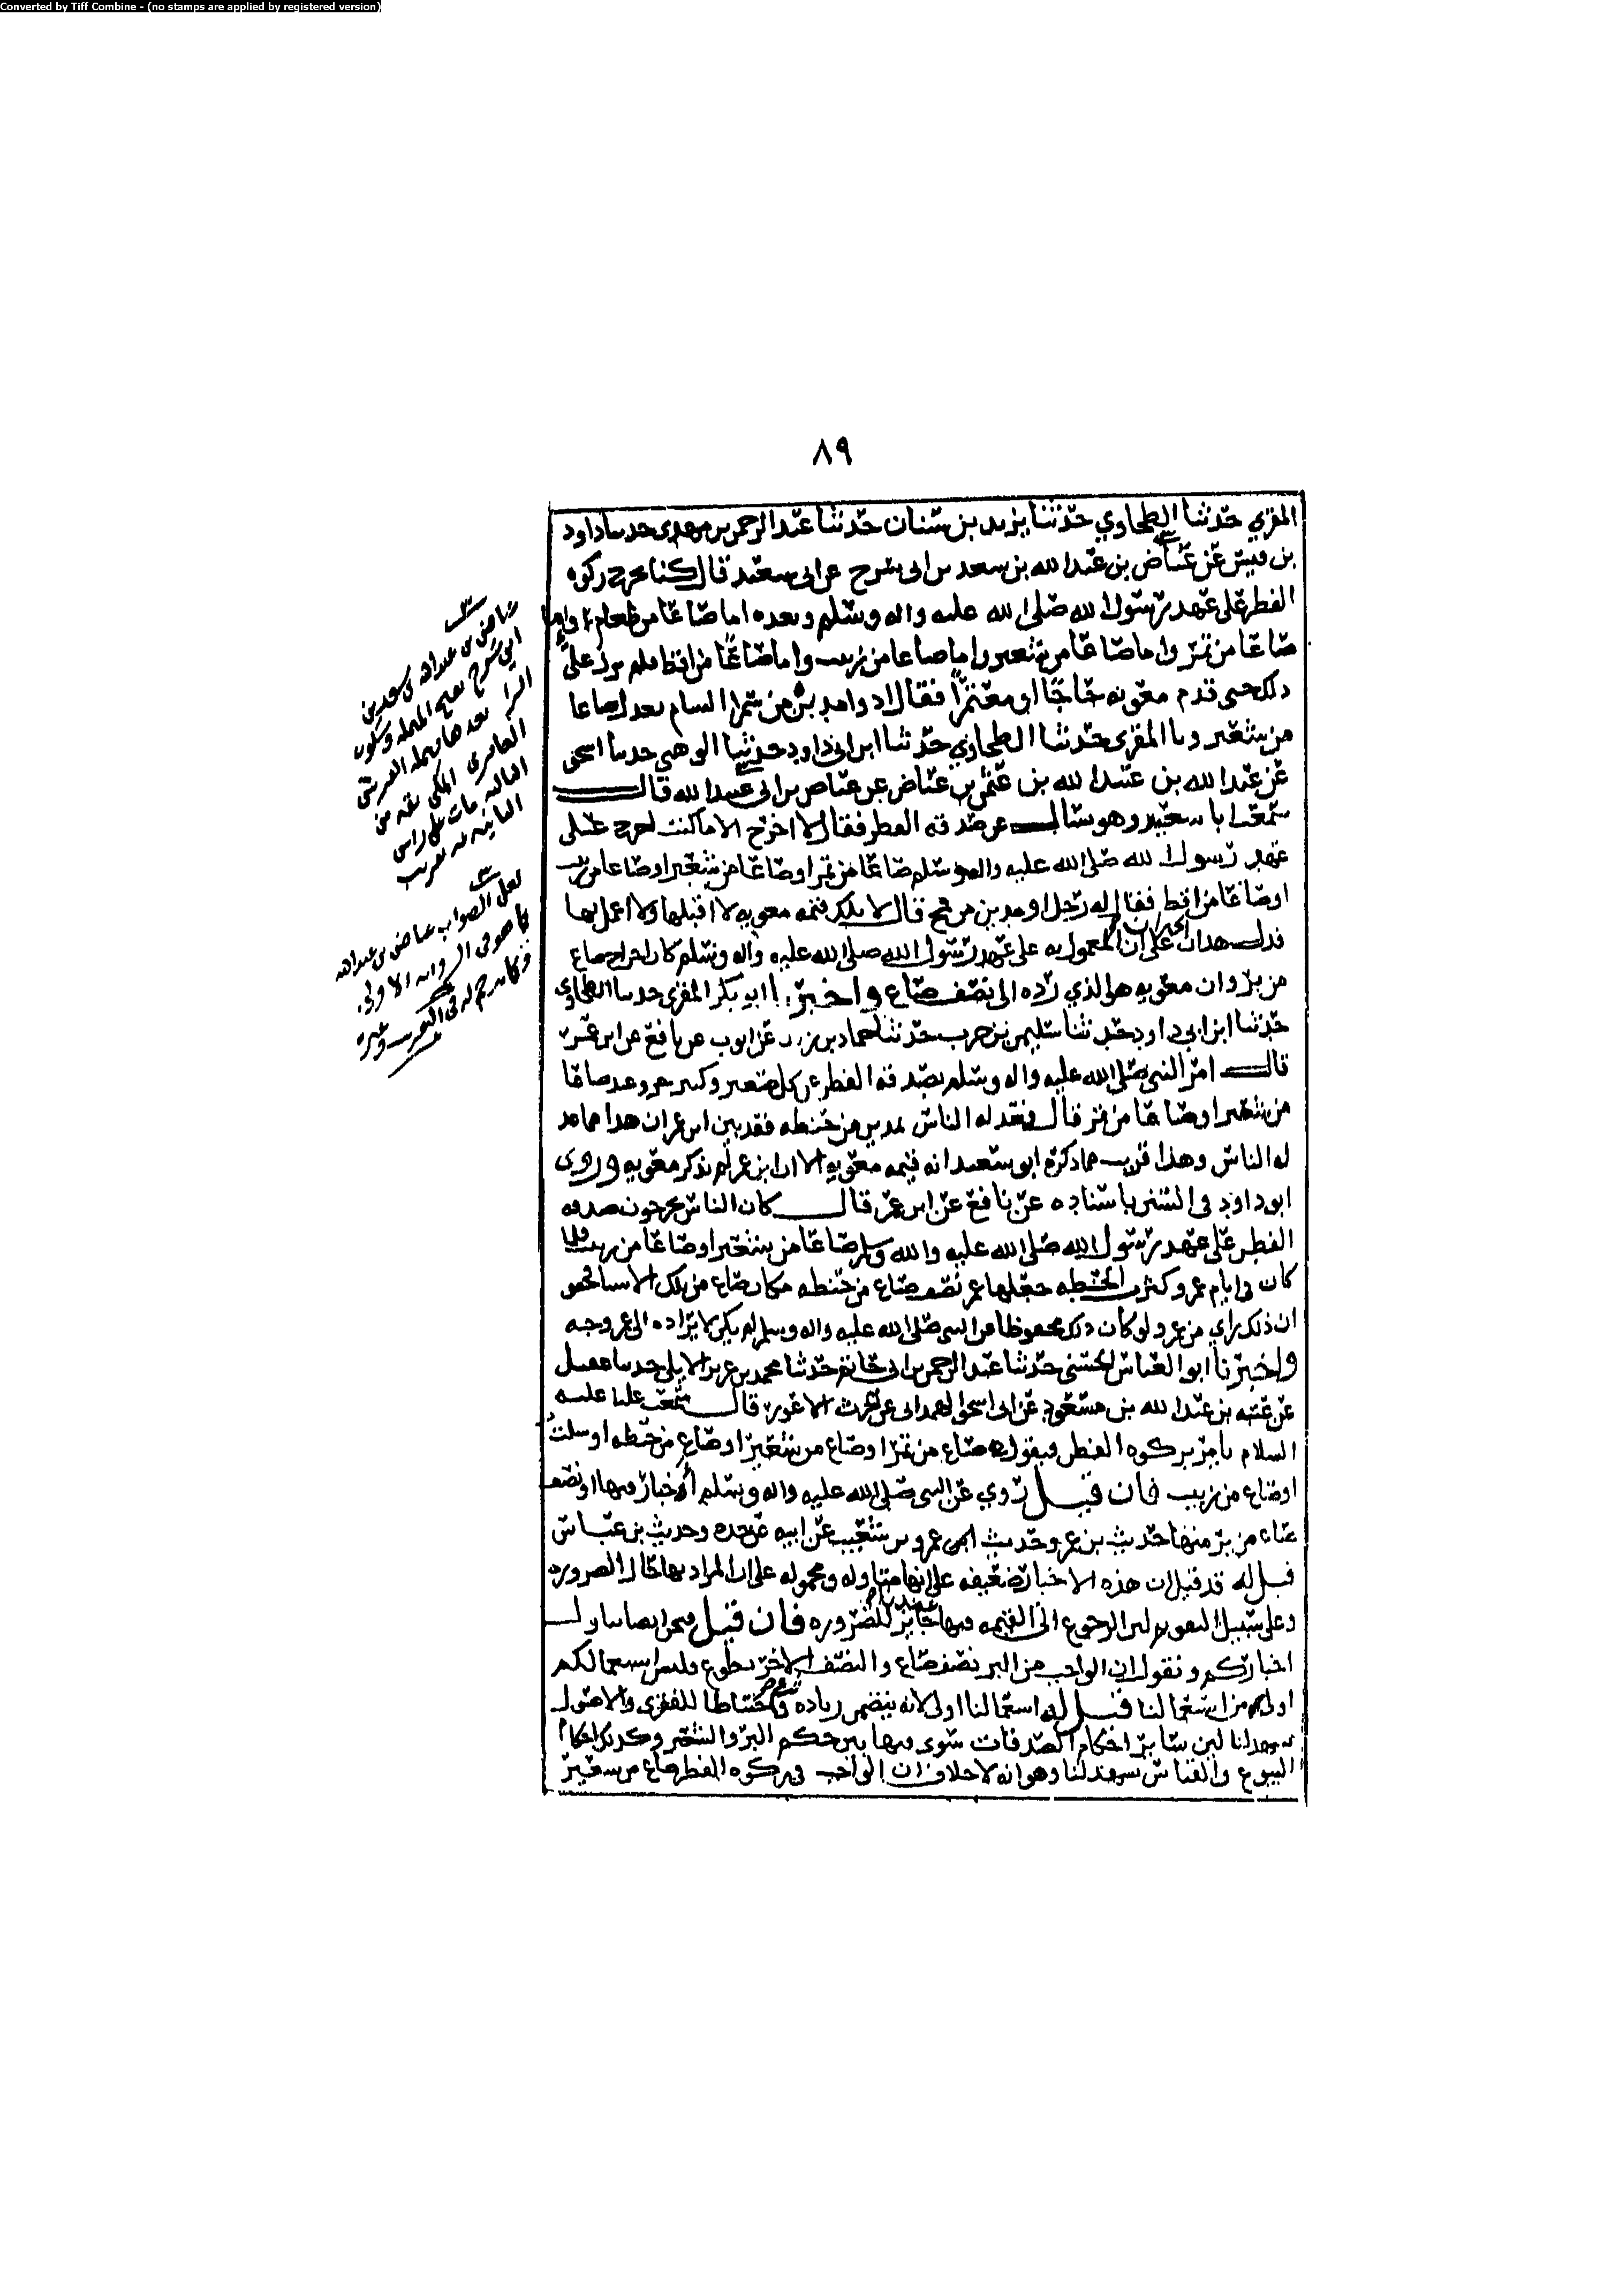 Converted by Tiff Combine - (no stamps are applied by registered version)
٨٩
المقري حدثنا الطحاوي حدثنا يزيد بن سنان حدثنا عبد الرحمن بن مهدي حدثنا داود
بن قيس عن عياض بن عبد الله بن سعد بن ابي سرح عن ابي سعيد قال كنا نخرج زكوه
الفطر على عهد رسول الله صلى الله عليه واله وسلم وبعده اما صاعا من طعام واما
صاعا من تمر واما صاعا من شعير واما صاعا من زبيب واما صاعا من اقط فلم نزل على
ذلك حتى قدم معويه حاجا او معتمرا فقال ادوا مدين من سمرا الشام يعدل صاعا
من شعير ونا المقري حدثنا الطحاوي حدثنا ابن ابي داود حدثنا الوهبي حدثنا اسحق
عن عبد الله بن عبد الله بن عثمن بن عياض عن عياض بن ابي عبد الله قال
سمعت ابا سعيد وهو يسال عن صدقه الفطر فقال لا اخرج الا ما كنت اخرج على
عهد رسول الله صلى الله عليه واله وسلم صاعا من تمر او صاعا من شعير او صاعا من زبيب
او صاعا من اقط فقال له رجل او مدين من قمح قال لا تلك قيمه معويه لا اقبلها ولا اعمل بها
فدل هذان على ان المعمول به على عهد رسول الله صلى الله عليه واله وسلم كان اخراج صاع
من بر وان معويه هو الذي رده الى نصف صاع واخبرنا ابو بكر المقري حدثنا الطحاوي
حدثنا ابن ابي داود حدثنا سليمن بن حرب حدثنا حماد بن زيد عن ايوب عن نافع عن ابن عمر
قال امر النبي صلى الله عليه واله وسلم بصدقه الفطر عن كل صغير وكبير حر وعبد صاعا
من شعير او صاعا من تمر قال فعدله الناس بمدين من حنطه فقد بين ابن عمر ان هذا مما عد
له الناس وهذا قريب مما ذكره ابو سعيد انه قيمه معويه الا ان ابن عمر لم يذكر معويه وروى
ابو داود في السنن باسناده عن نافع عن ابن عمر قال كان الناس يخرجون صدقه
الفطر على عهد رسول الله صلى الله عليه واله وسلم صاعا من شعير او صاعا من زبيب فلما
كان في ايام عمر وكثرت الحنطه جعلها عمر نصف صاع من حنطه مكان صاع من تلك الاشيا
ان ذلك راي من عمر ولو كان ذلك محفوظا عن النبي صلى الله عليه واله وسلم لم يكن لايراده الى عمر وجه
واخبرنا ابو العباس الحسني حدثنا عبد الرحمن بن ابي حاتم حدثنا محمد بن عزيز الايلي حدثنا
عن عتبه بن عبد الله بن مسعود عن ابي اسحق الهمداني عن الحرث الاعور قال سمعت عليا عليه
السلام يامر بزكوه الفطر فيقول صاع من تمر او صاع من شعير او صاع من حنطه او سلت
او صاع من زبيب فان قيل روي عن النبي صلى الله عليه واله وسلم اخبار فيها او نصف
صاع من بر منها حديث بن عمر وحديث عمرو بن شعيب عن ابيه عن جده وحديث بن عباس
قيل له قد قيل ان هذه الاخبار ضعيفه على انها متاوله ومحموله على ان المراد بها حال الضروره
وعلى سبيل التقويم لان الرجوع الى القيمه فيها جايز للضروره فان قيل فنحن ايضا نتاول
اخباركم ونقول ان الواجب من البر نصف صاع والنصف الاخر تطوع فليس استعمالكم
اولى من استعمالنا قيل له استعمالنا اولى لانه يتضمن زياده واحتياطا للفقرى والاصول
تشهد لنا لان سائر احكام الصدقات سوى فيها بين حكم البر والشعير وكذلك احكام
البيوع والقياس يشهد لنا وهو انه لا خلاف ان الواجب في زكوه الفطر صاع من شعير
عياض بن عبد الله بن سعد بن
ابي سرح بفتح المهمله وسكون
الرا بعدها مهمله القرشي
العامري المكي ثقه من
الثالثه مات على راس
الماية تقريب
لعل الصواب عياض بن عبد الله
كما هو في الروايه الاولى
وكما ترجم له في التقريب وغيره